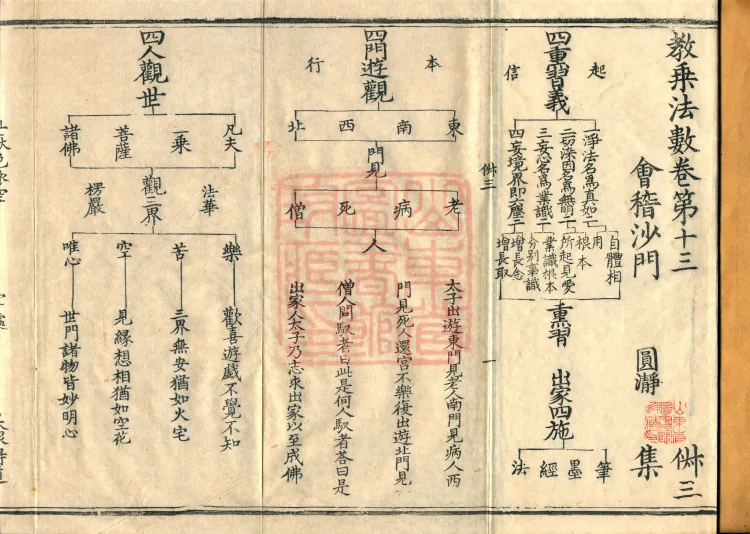 教乗法數卷第十三
俶三
會稽沙門
圓瀞
集
四重習義
起
信
一淨法名爲真如二
二染因名爲無明二
三妄心名爲業識二
四妄境界即六塵二
自體相
用
根本
所起見愛
業識根本
分别事識
增長念
增長取
熏習
出家四施
筆
墨
經
法
俶三
一
四門遊觀
本
行
東
南
西
北
門見
老
病
死
僧
人
太子出遊東門見老人南門見病人西
門見死人還宫不樂復出遊北門見
僧人問馭者曰此是何人馭者答曰是
出家人太子乃志求出家以至成佛
四人觀世
凡夫
二乘
菩薩
諸佛
觀三界
法華
楞嚴
樂
歡喜遊戲不覺不知
苦
三界無安猶如火宅
空
見緣想相猶如空花
唯心
世間諸物皆妙明心